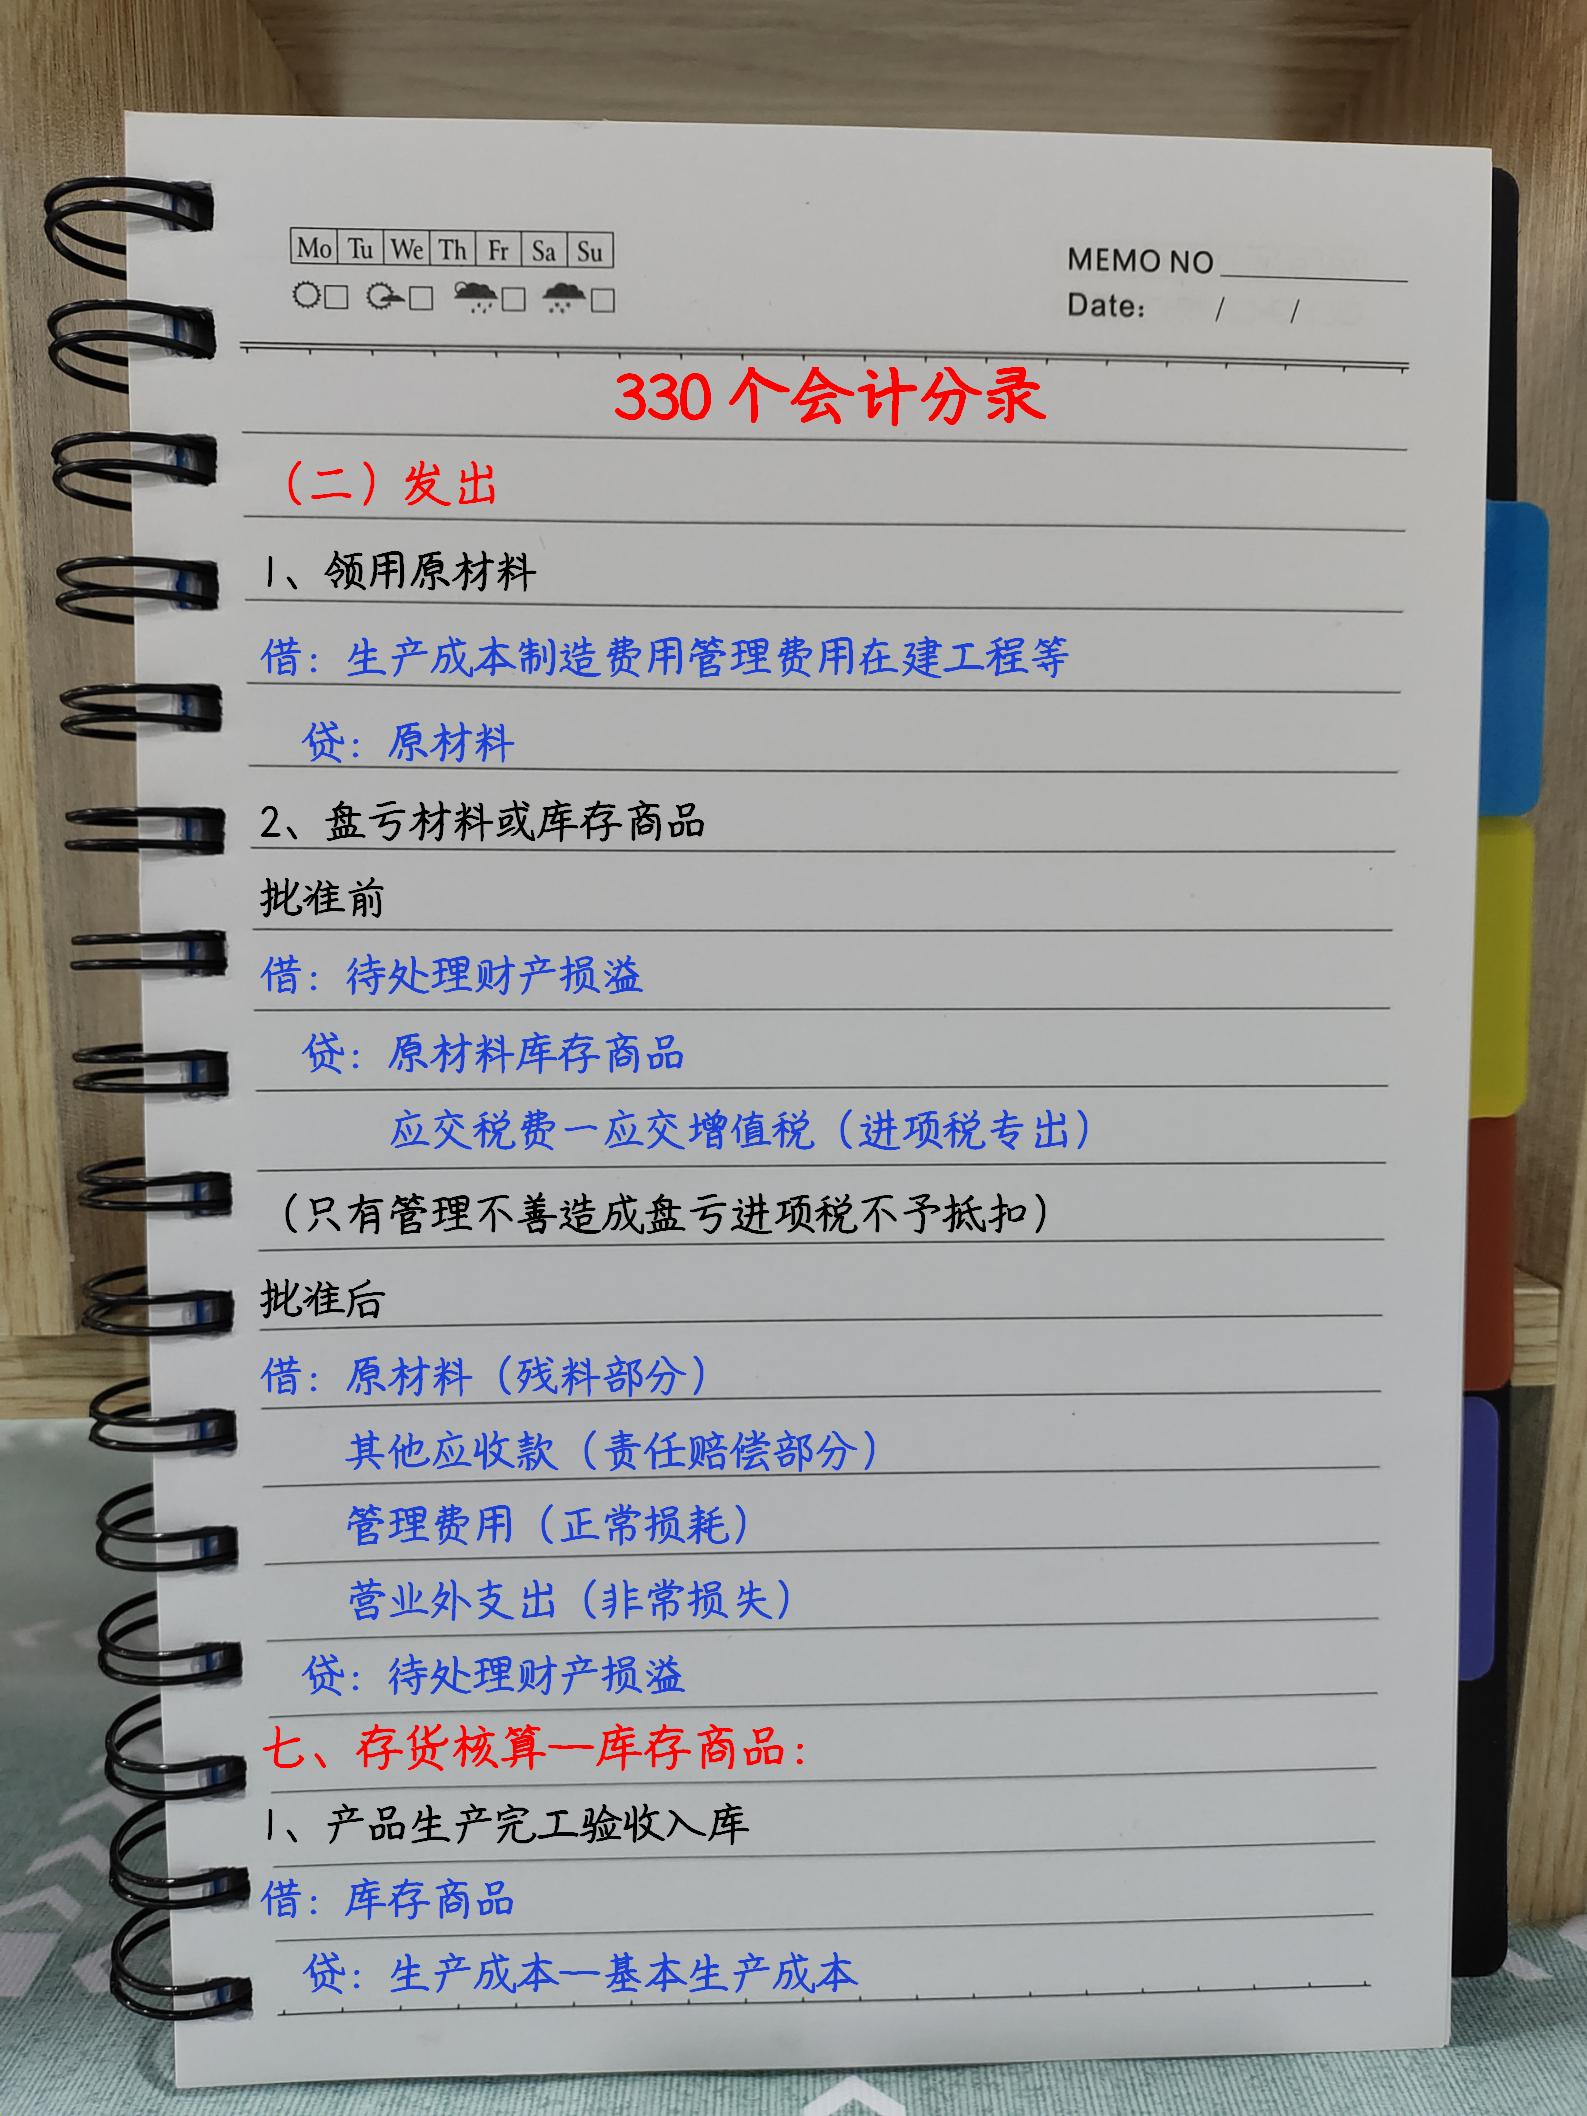 Mo Tu We Th Fr Sa Su
MEMO NO
Date: / /
330个会计分录
（二）发出
1、领用原材料
借：生产成本制造费用管理费用在建工程等
贷：原材料
2、盘亏材料或库存商品
批准前
借：待处理财产损溢
贷：原材料库存商品
应交税费一应交增值税（进项税专出）
（只有管理不善造成盘亏进项税不予抵扣）
批准后
借：原材料（残料部分）
其他应收款（责任赔偿部分）
管理费用（正常损耗）
营业外支出（非常损失）
贷：待处理财产损溢
七、存货核算—库存商品：
1、产品生产完工验收入库
借：库存商品
贷：生产成本—基本生产成本